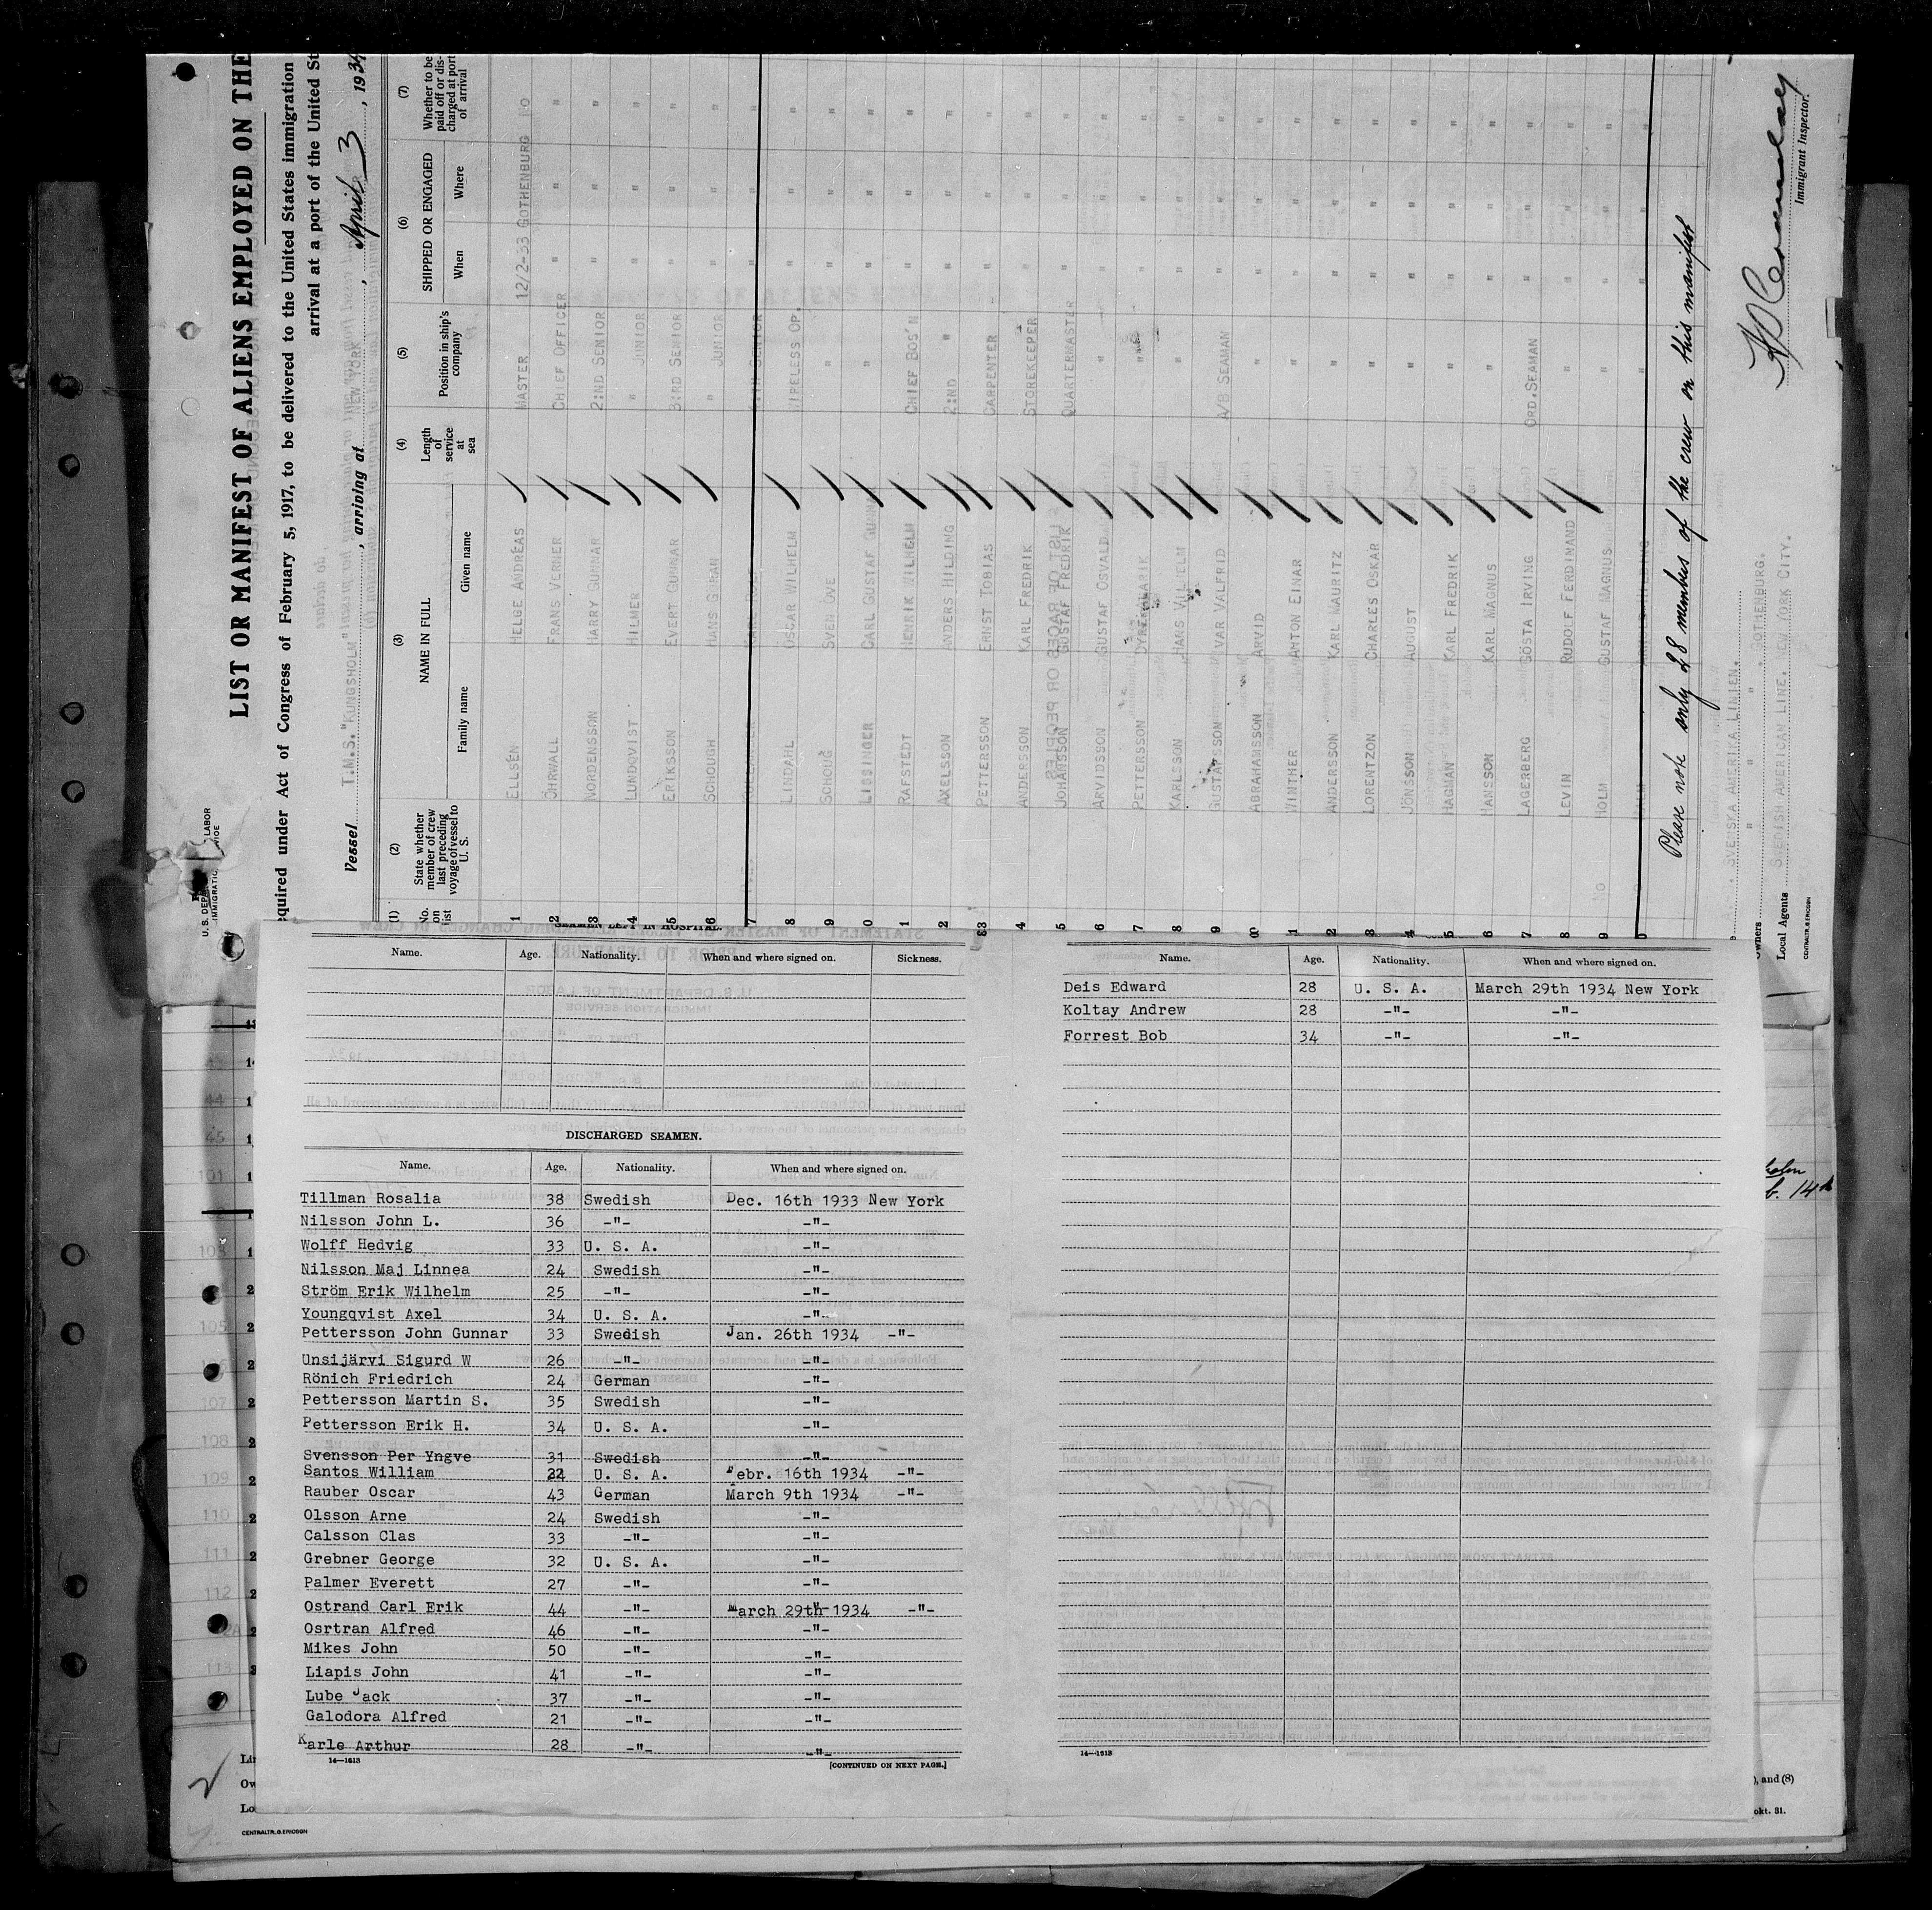 LIST OR MANIFEST OF ALIENS EMPLOYED ON THE
equired under Act of Congress of February 5, 1917, to be delivered to the United States immigration
arrival at a port of the United St
Vessel T.M.S. "KUNGSHOLM", arriving at NEW YORK, April 3, 1934
(1) No. on list (2) State whether member of crew last preceding voyage of vessel to U. S. (3) NAME IN FULL Family name Given name (4) Length of service at sea (5) Position in ship's company (6) SHIPPED OR ENGAGED When Where (7) Whether to be paid off or discharged at port of arrival
1 ELLSÉN HELGE ANDREAS MASTER 12/2-33 GOTHENBURG NO
2 ÖHRWALL FRANS VERNER CHIEF OFFICER " " "
3 NORDENSSON HARRY GUNNAR 2:ND SENIOR " " "
4 LUNDQVIST HILMER " JUNIOR " " "
5 ERIKSSON EVERT GUNNAR 3:RD SENIOR " " "
6 SCHOUGH HANS GÖRAN " JUNIOR " " "
7
8 LINDAHL OSCAR WILHELM WIRELESS OP. " " "
9 SCHOUG SVEN OVE " " " "
0 LISSINGER CARL GUSTAF " " " "
1 RAFSTEDT HENRIK WILHELM CHIEF BOS'N " " "
2 AXELSSON ANDERS HILDING 2:ND " " " "
3 PETTERSSON ERNST TOBIAS CARPENTER " " "
4 ANDERSSON KARL FREDRIK STOREKEEPER " " "
5 JOHANSSON GUSTAF FREDRIK QUARTERMASTER " " "
6 ARVIDSSON GUSTAF OSVALD " " " "
7 PETTERSSON " " " "
8 KARLSSON HANS VILHELM " " " "
9 GUSTAFSSON IVAR VALFRID A/B SEAMAN " " "
0 ABRAHAMSSON ARVID " " " "
1 WINTHER ANTON EINAR " " " "
2 ANDERSSON KARL MAURITZ " " " "
3 LORENTZON CHARLES OSKAR " " " "
4 JÖNSSON AUGUST " " " "
5 HAGMAN KARL FREDRIK " " " "
6 HANSSON KARL MAGNUS " " " "
7 LAGERBERG GÖSTA IRVING ORD.SEAMAN " " "
8 LEVIN RUDOLF FERDINAND " " " "
9 NO HOLM GUSTAF MAGNUS " " " "
Please note only 28 members of the crew on this manifest
Owners SVENSKA AMERIKA LINIEN. GOTHENBURG.
Local Agents SWEDISH AMERICAN LINE. NEW YORK CITY.
Immigrant Inspector.
CENTRALTR. G. ERICSON
SEAMEN LEFT IN HOSPITAL.
Name. Age. Nationality. When and where signed on. Sickness.
DISCHARGED SEAMEN.
Name. Age. Nationality. When and where signed on.
Tillman Rosalia 38 Swedish Dec. 16th 1933 New York
Nilsson John L. 36 -"- -"-
Wolff Hedvig 33 U. S. A. -"-
Nilsson Maj Linnea 24 Swedish -"-
Ström Erik Wilhelm 25 -"- -"-
Youngqvist Axel 34 U. S. A. -"-
Pettersson John Gunnar 33 Swedish Jan. 26th 1934 -"-
Unsijärvi Sigurd W 26 -"- -"-
Rönich Friedrich 24 German -"-
Pettersson Martin S. 35 Swedish -"-
Pettersson Erik H. 34 U. S. A. -"-
Svensson Per Yngve 31 Swedish -"-
Santos William 22 U. S. A. Febr. 16th 1934 -"-
Rauber Oscar 43 German March 9th 1934 -"-
Olsson Arne 24 Swedish -"-
Calsson Clas 33 -"- -"-
Grebner George 32 U. S. A. -"-
Palmer Everett 27 -"- -"-
Ostrand Carl Erik 44 -"- March 29th 1934 -"-
Osrtran Alfred 46 -"- -"-
Mikes John 50 -"- -"-
Liapis John 41 -"- -"-
Lube Jack 37 -"- -"-
Galodora Alfred 21 -"- -"-
Karle Arthur 28 -"- -"-
14—1613
[CONTINUED ON NEXT PAGE.]
Name. Age. Nationality. When and where signed on.
Deis Edward 28 U. S. A. March 29th 1934 New York
Koltay Andrew 28 -"- -"-
Forrest Bob 34 -"- -"-
14—1613
), and (8)
okt. 31.
CENTRALTR. G. ERICSON